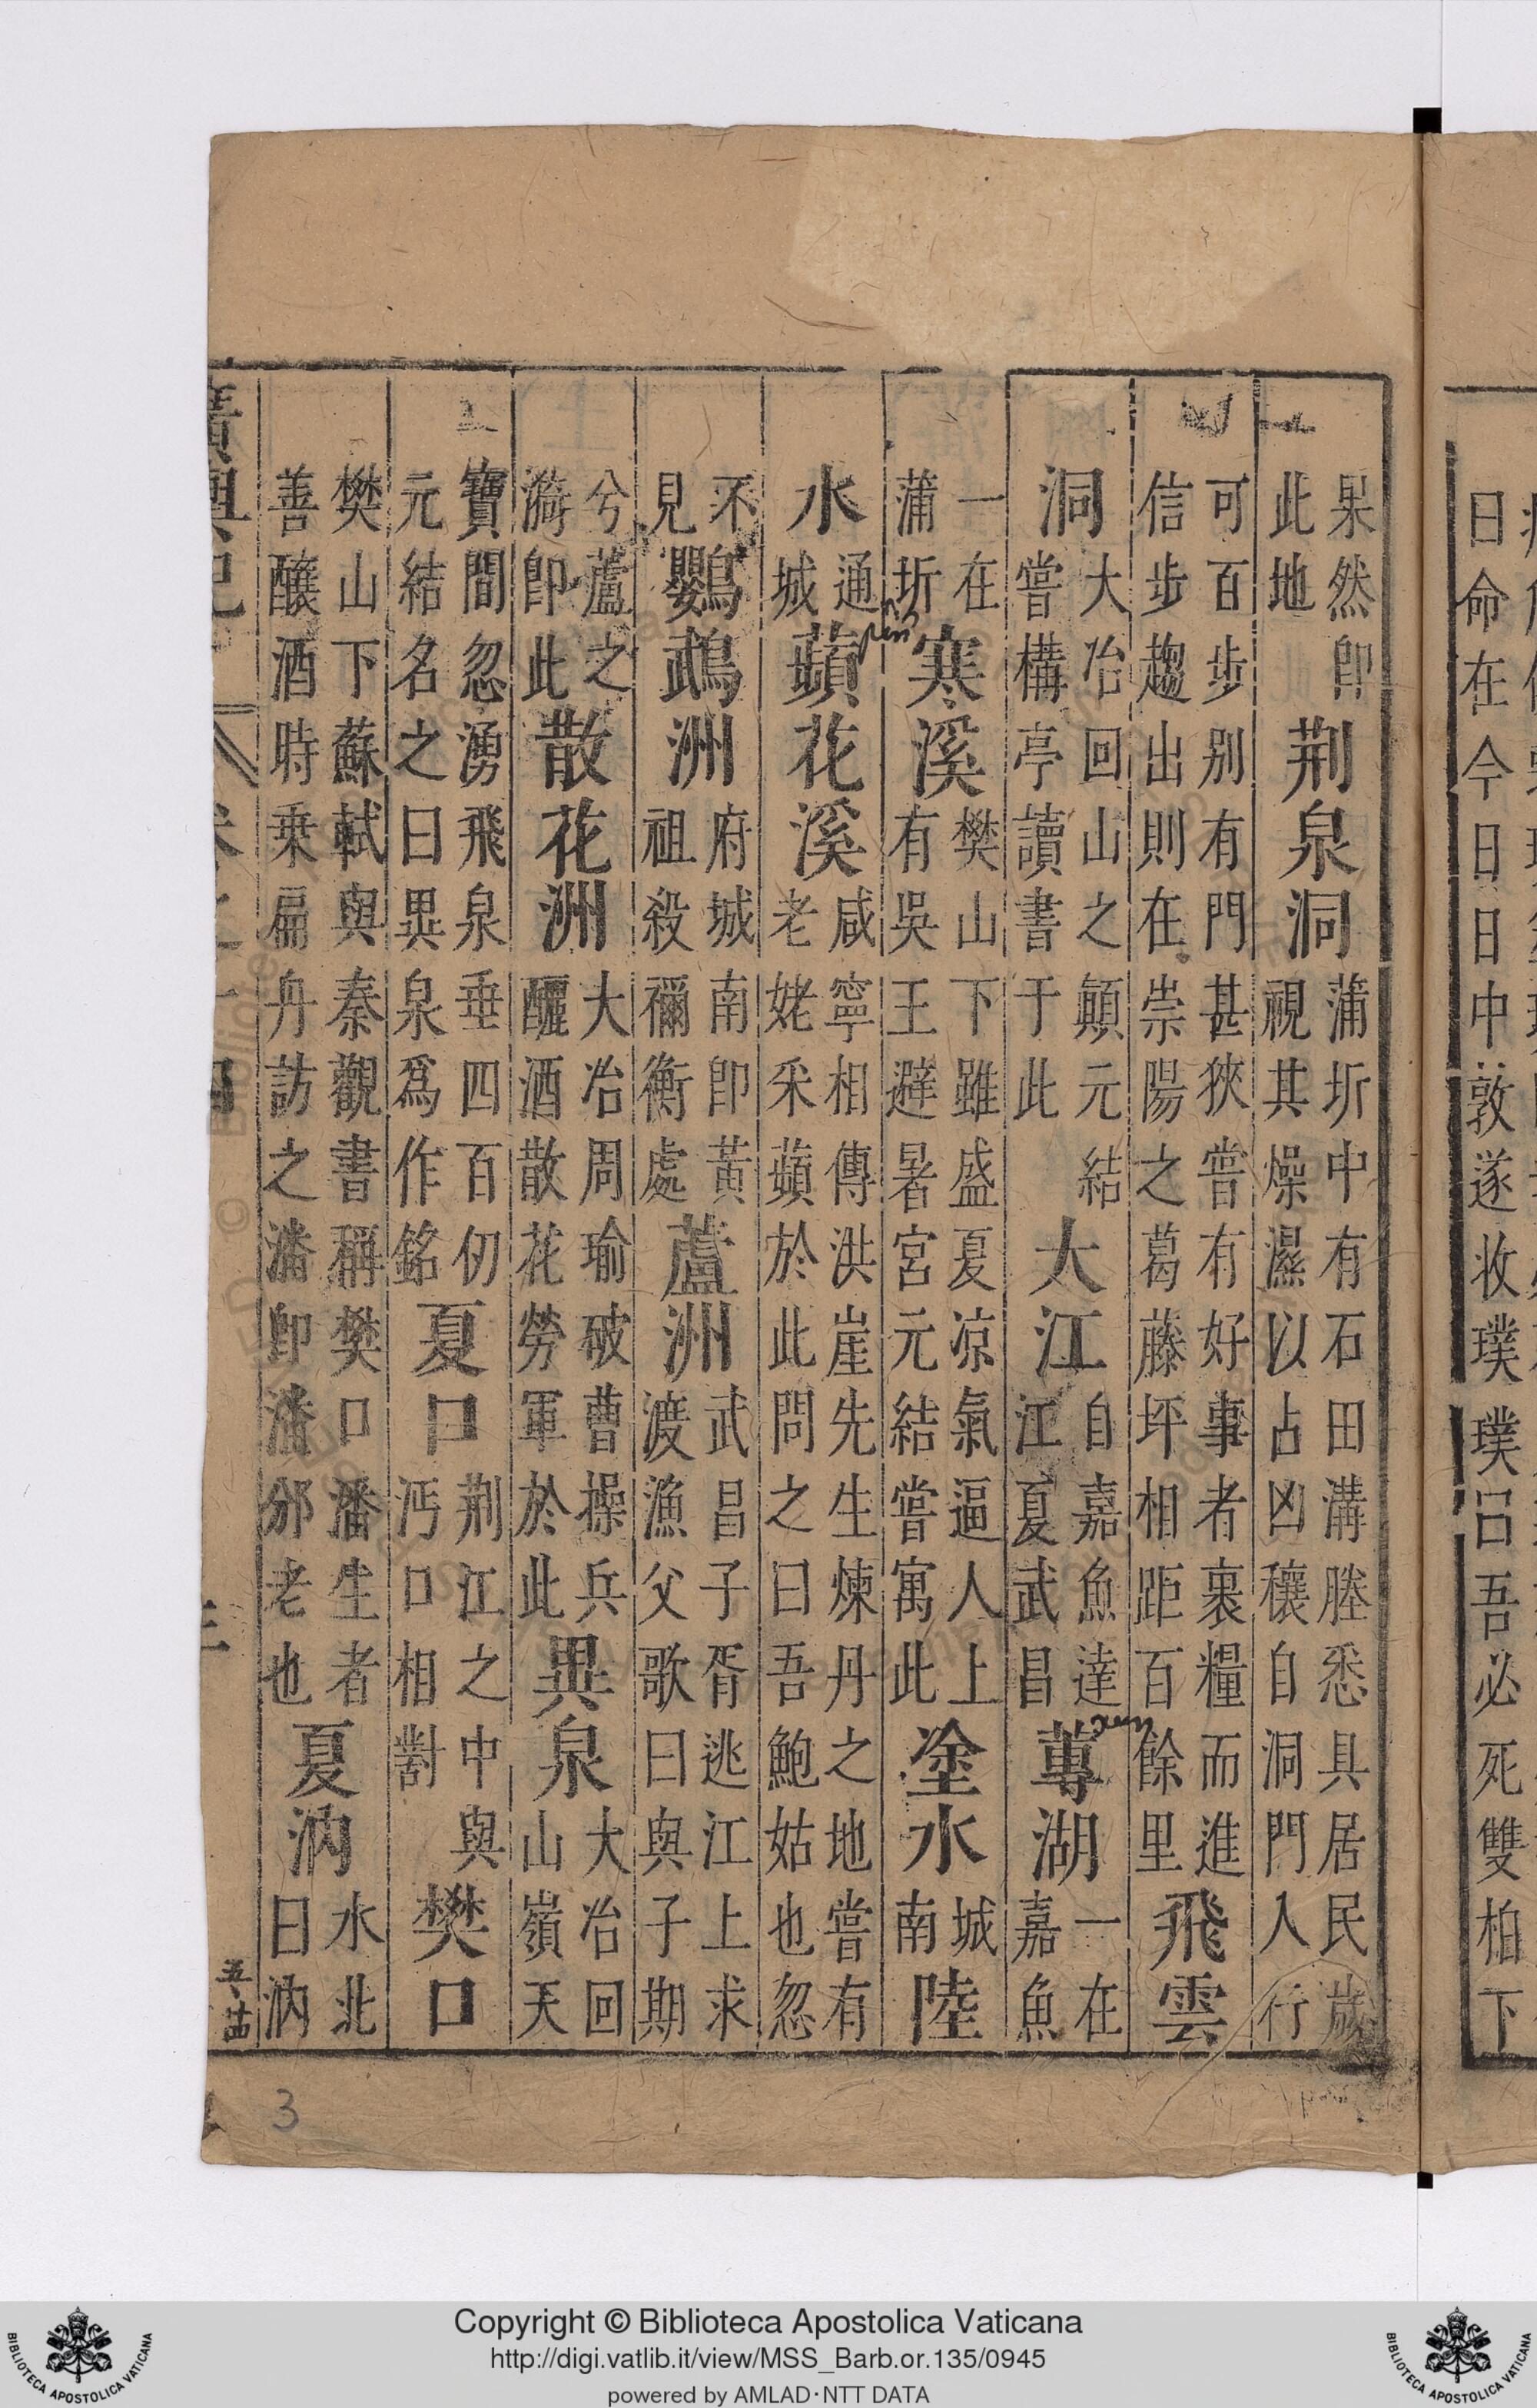 日命在今日日中敦遂收璞璞曰吾必死雙柏下
果然即此地荆泉洞蒲圻中有石田溝塍悉具居民歲視其燥濕以占凶穰自洞門入行
可百步别有門甚狹嘗有好事者裹糧而進信步趨出則在崇陽之葛藤坪相距百餘里飛雲
洞大冶回山之顛元結嘗構亭讀書于此大江自嘉魚達江夏武昌蓴湖一在嘉魚
一在蒲圻寒溪樊山之下雖盛夏凉氣逼人上有吳王避暑宮元結嘗寓此塗水城南陸
水通城蘋花溪咸寧相傳洪崖先生煉丹之地嘗有老姥采蘋於此問之曰吾鮑姑也忽
不見鸚鵡洲府城南即黃祖殺禰衡處蘆洲武昌子胥逃江上求渡漁父歌曰與子期
兮蘆之漪即此散花洲大冶周瑜破曹操兵釃酒散花勞軍於此異泉大冶回山嶺天
寶間忽湧飛泉垂四百仞元結名之曰異泉爲作銘夏口荆江之中與沔口相對樊口
樊山下蘇軾與秦觀書稱樊口潘生者善釀酒時乗扁舟訪之潘即潘邠老也夏汭水北曰汭
廣輿記
3
Copyright © Biblioteca Apostolica Vaticana
http://digi.vatlib.it/view/MSS_Barb.or.135/0945
powered by AMLAD·NTT DATA
BIBLIOTECA APOSTOLICA VATICANA
BIBLIOTECA APOSTOLICA VATICANA